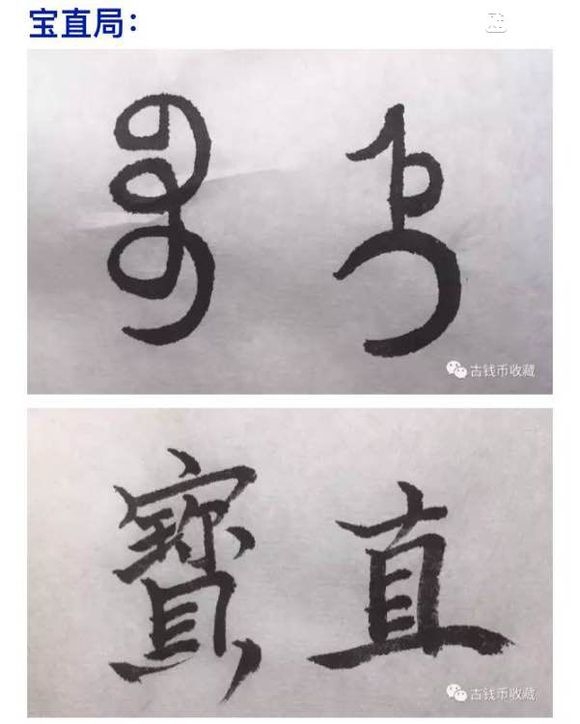 宝直局：
ᠪᠣᠣ ᡷᡳ
古钱币收藏
寳 直
古钱币收藏